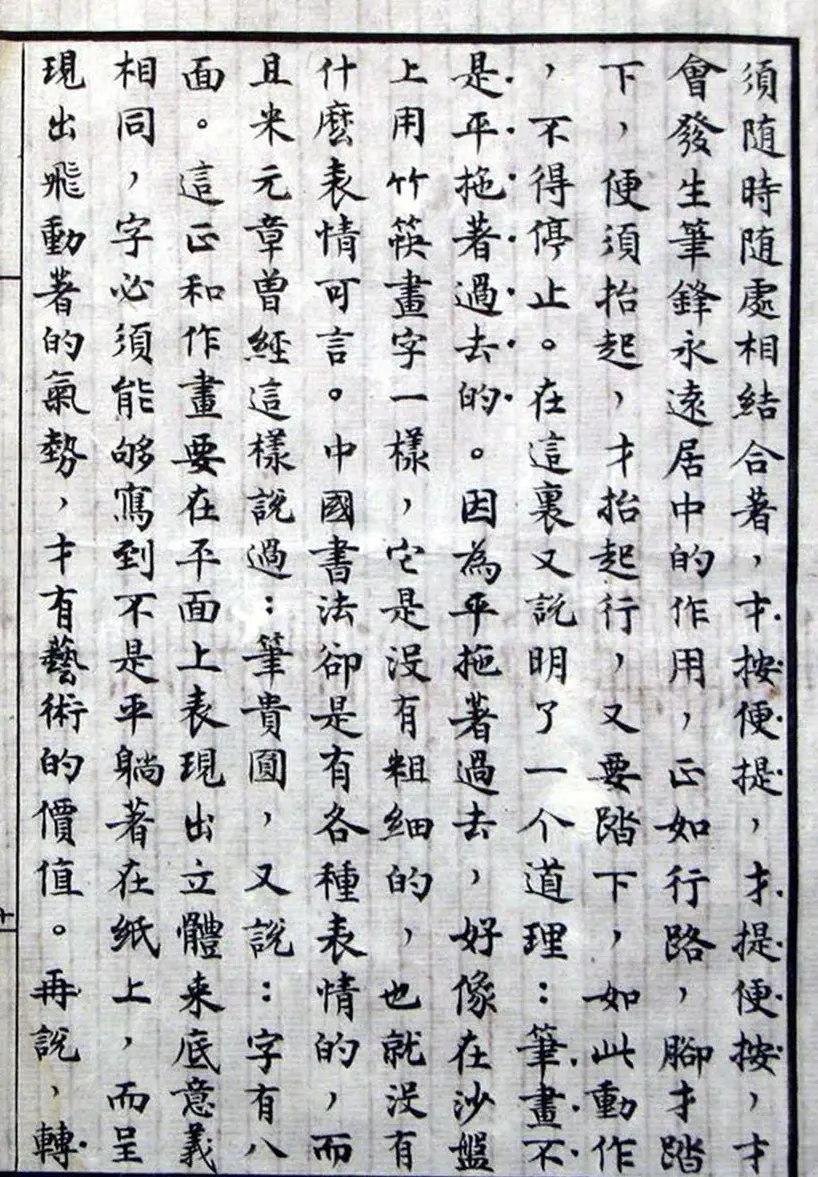 須隨時隨處相結合著，才按便提，才提便按，才
會發生筆鋒永遠居中的作用，正如行路，腳才踏
下，便須抬起，才抬起行，又要踏下，如此動作
，不得停止。在這裏又說明了一个道理：筆畫不
是平拖著過去的。因為平拖著過去，好像在沙盤
上用竹筷畫字一樣，它是没有粗細的，也就没有
什麼表情可言。中國書法卻是有各種表情的，而
且米元章曾經這樣說過：筆貴圓，又說：字有八
面。這正和作畫要在平面上表現出立體来底意義
相同，字必須能够寫到不是平躺著在紙上，而呈
現出飛動著的氣勢，才有藝術的價值。再說，轉